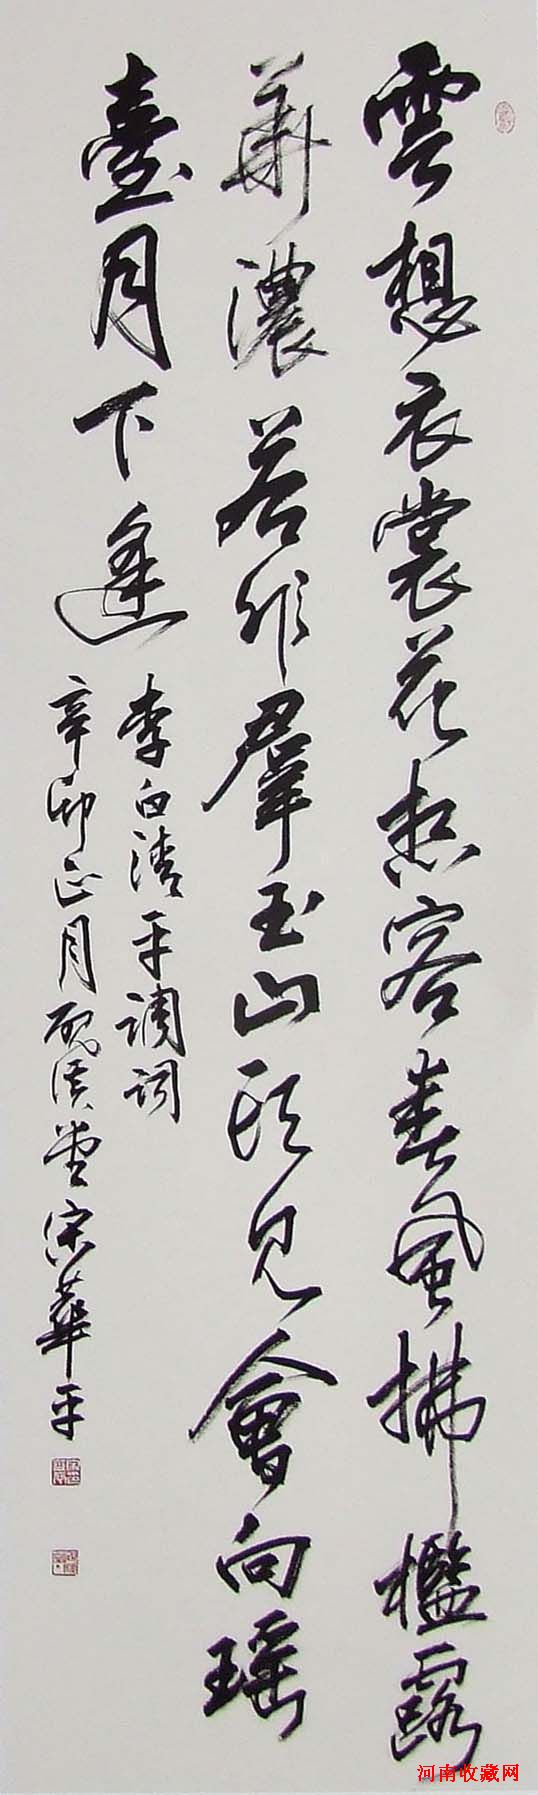 雲想衣裳花想容春風拂檻露
華濃若非羣玉山頭見會向瑶
臺月下逢
李白清平調詞
辛卯正月 堂宋華平
河南收藏网